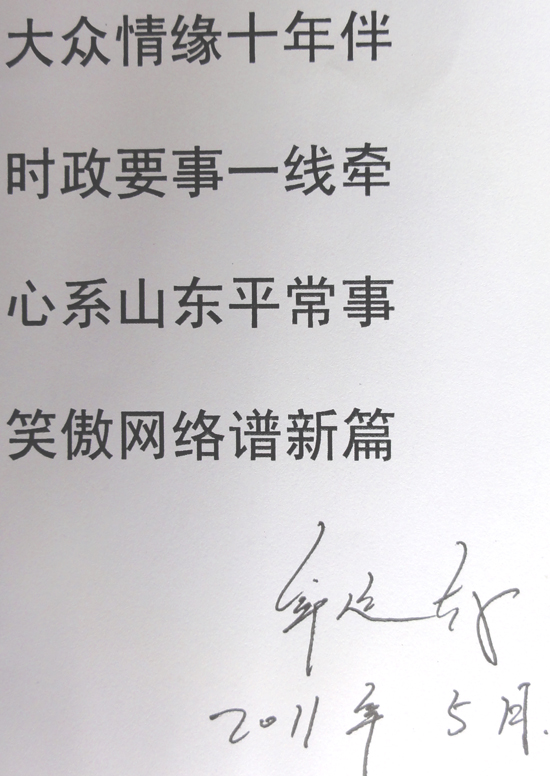 大众情缘十年伴
时政要事一线牵
心系山东平常事
笑傲网络谱新篇
2011年5月.